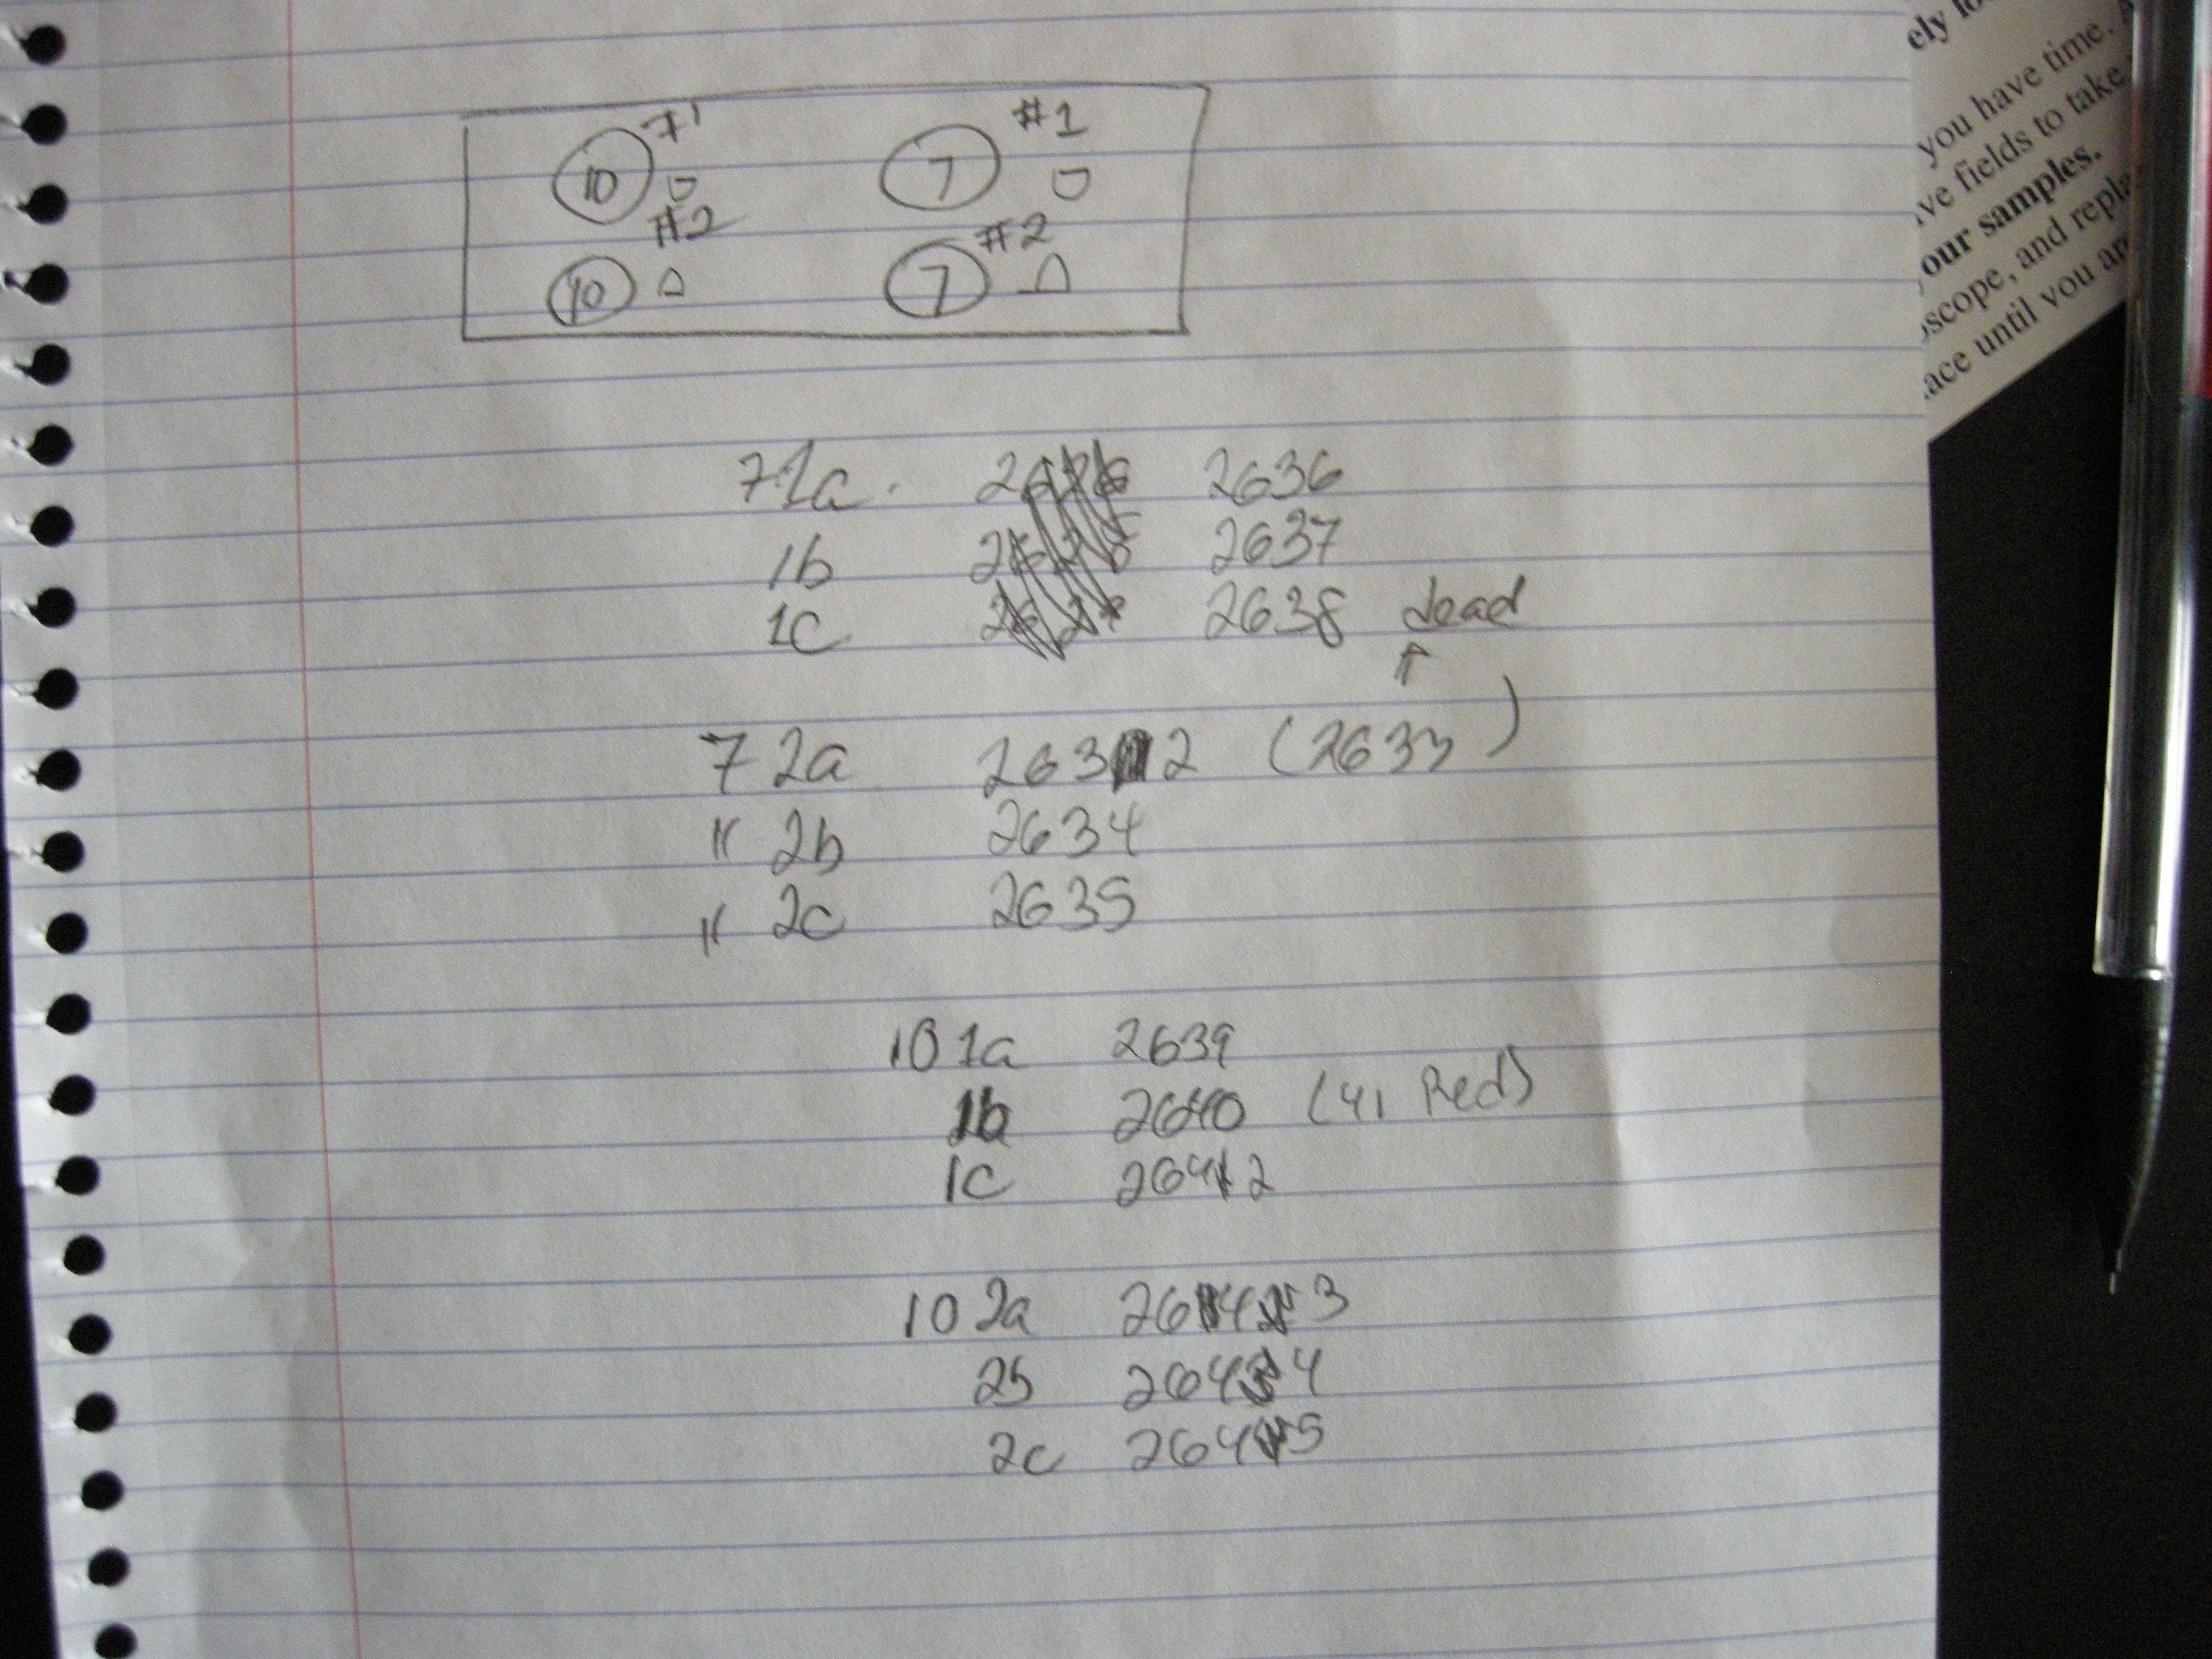 7' #1
10 7
#2 #2
10 7
7 1a 2636
1b 2637
1c 2638 dead
7 2a 2632 (2633)
" 2b 2634
" 2c 2635
10 1a 2639
1b 2640 (41 Red)
1c 2642
10 2a 2643
2b 2644
2c 2645
ely
you have time.
ve fields to take
our samples.
scope, and repla
ace until you ar